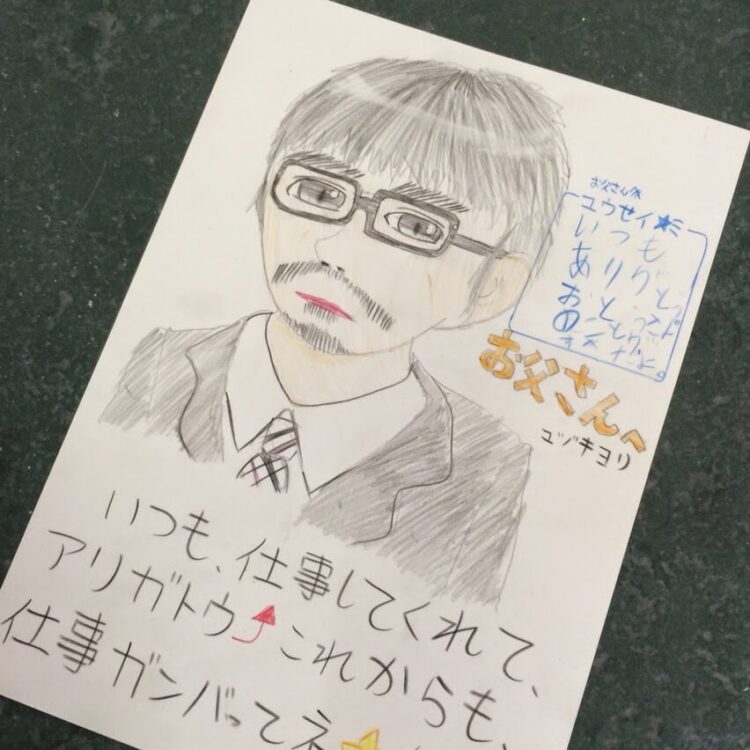 お父さんへ
ユウセイ
いつも
ありがとう
お父さんへ
ユヅキヨリ
いつも、仕事してくれて、
アリガトウ これからも、
仕事ガンバってネ